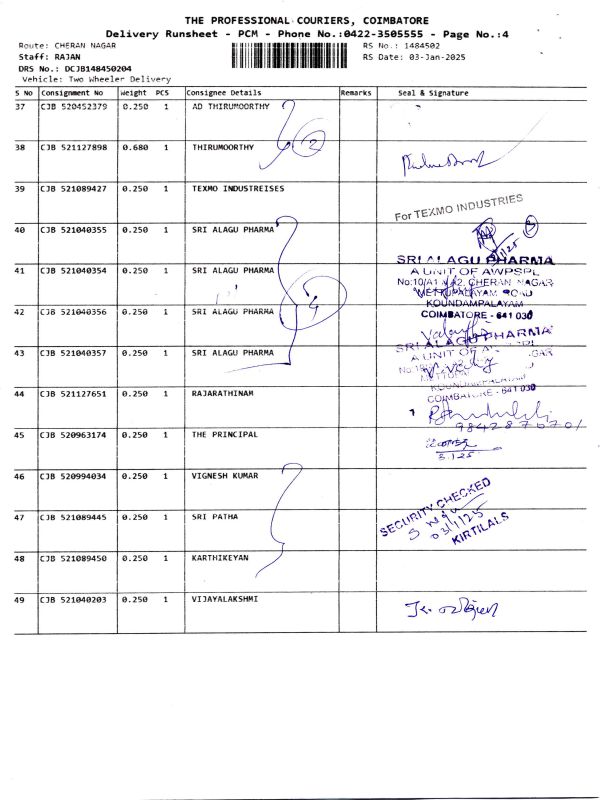 THE PROFESSIONAL COURIERS, COIMBATORE
Delivery Runsheet - PCM - Phone No.:0422-3505555 - Page No.:4
Route: CHERAN NAGAR RS No.: 1484502
Staff: RAJAN RS Date: 03-Jan-2025
DRS No.: DCJB148450204
Vehicle: Two Wheeler Delivery
S No Consignment No Weight PCS Consignee Details Remarks Seal & Signature
37 CJB 520452379 0.250 1 AD THIRUMOORTHY
2
38 CJB 521127898 0.680 1 THIRUMOORTHY
39 CJB 521089427 0.250 1 TEXMO INDUSTREISES
For TEXMO INDUSTRIES
40 CJB 521040355 0.250 1 SRI ALAGU PHARMA
3
SRI ALAGU PHARMA
A UNIT OF AWPSPL
41 CJB 521040354 0.250 1 SRI ALAGU PHARMA
CHERAN NAGAR
METTUPALAYAM ROAD
4
KOUNDAMPALAYAM
42 CJB 521040356 0.250 1 SRI ALAGU PHARMA
COIMBATORE - 641 030
SRI ALAGU PHARMA
43 CJB 521040357 0.250 1 SRI ALAGU PHARMA
A UNIT OF
44 CJB 521127651 0.250 1 RAJARATHINAM
COIMBATORE - 641 030
45 CJB 520963174 0.250 1 THE PRINCIPAL
3.1.25
46 CJB 520994034 0.250 1 VIGNESH KUMAR
SECURITY CHECKED
47 CJB 521089445 0.250 1 SRI PATHA
03/1/25
KIRTILALS
48 CJB 521089450 0.250 1 KARTHIKEYAN
49 CJB 521040203 0.250 1 VIJAYALAKSHMI